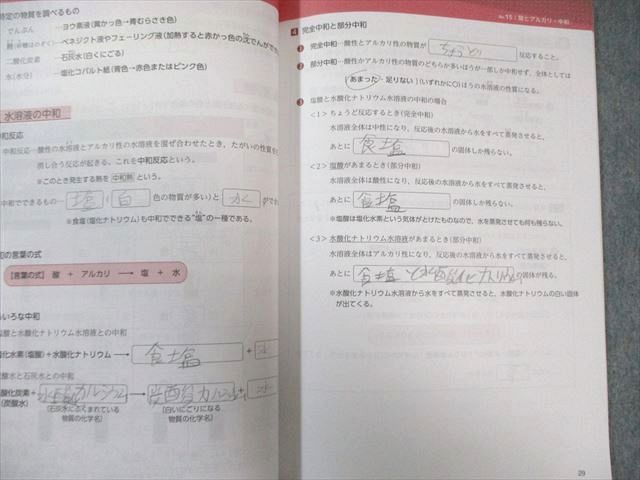 特定の物質を調べるもの
でんぷん ヨウ素液(黄かっ色→青むらさき色)
糖 ベネジクト液やフェーリング液(加熱すると赤かっ色の沈でんができ
二酸化炭素 石灰水(白くにごる)
水(水分) 塩化コバルト紙(青色→赤色またはピンク色)
水溶液の中和
中和反応
中和反応…酸性の水溶液とアルカリ性の水溶液を混ぜ合わせたとき、たがいの性質を
消し合う反応が起きる。これを中和反応という。
※このとき発生する熱を 中和熱 という。
中和でできるもの… 塩 ( 白 色の物質が多い)と 水 ができ
※食塩(塩化ナトリウム)も中和でできる"塩"の一種である。
和の言葉の式
【言葉の式】 酸 + アルカリ → 塩 + 水
いろいろな中和
塩酸と水酸化ナトリウム水溶液との中和
化水素(塩酸)+水酸化ナトリウム → 食塩 + 水
酸水と石灰水との中和
酸化炭素 + 水酸化カルシウム → 炭酸カルシウム + 水
(炭酸水) (石灰水にふくまれている (白いにごりになる
物質の化学名) 物質の化学名)
No.15|酸とアルカリ・中和
4 完全中和と部分中和
1 完全中和…酸性とアルカリ性の物質が ちょうど 反応すること。
2 部分中和…酸性かアルカリ性の物質のどちらか多いほうが一部しか中和せず、全体としては
(あまった・足りない)(いずれかに○)ほうの水溶液の性質になる。
3 塩酸と水酸化ナトリウム水溶液の中和の場合
<1> ちょうど反応するとき(完全中和)
水溶液全体は中性になり、反応後の水溶液から水をすべて蒸発させると、
あとに 食塩 の固体しか残らない。
<2> 塩酸があまるとき(部分中和)
水溶液全体は酸性になり、反応後の水溶液から水をすべて蒸発させると、
あとに 食塩 の固体しか残らない。
※塩酸は塩化水素という気体がとけたものなので、水を蒸発させても何も残らない。
<3> 水酸化ナトリウム水溶液があまるとき(部分中和)
水溶液全体はアルカリ性になり、反応後の水溶液から水をすべて蒸発させると、
あとに 食塩と水酸化ナトリウム の固体が残る。
※水酸化ナトリウム水溶液から水をすべて蒸発させると、水酸化ナトリウムの白い固体
が出てくる。
29